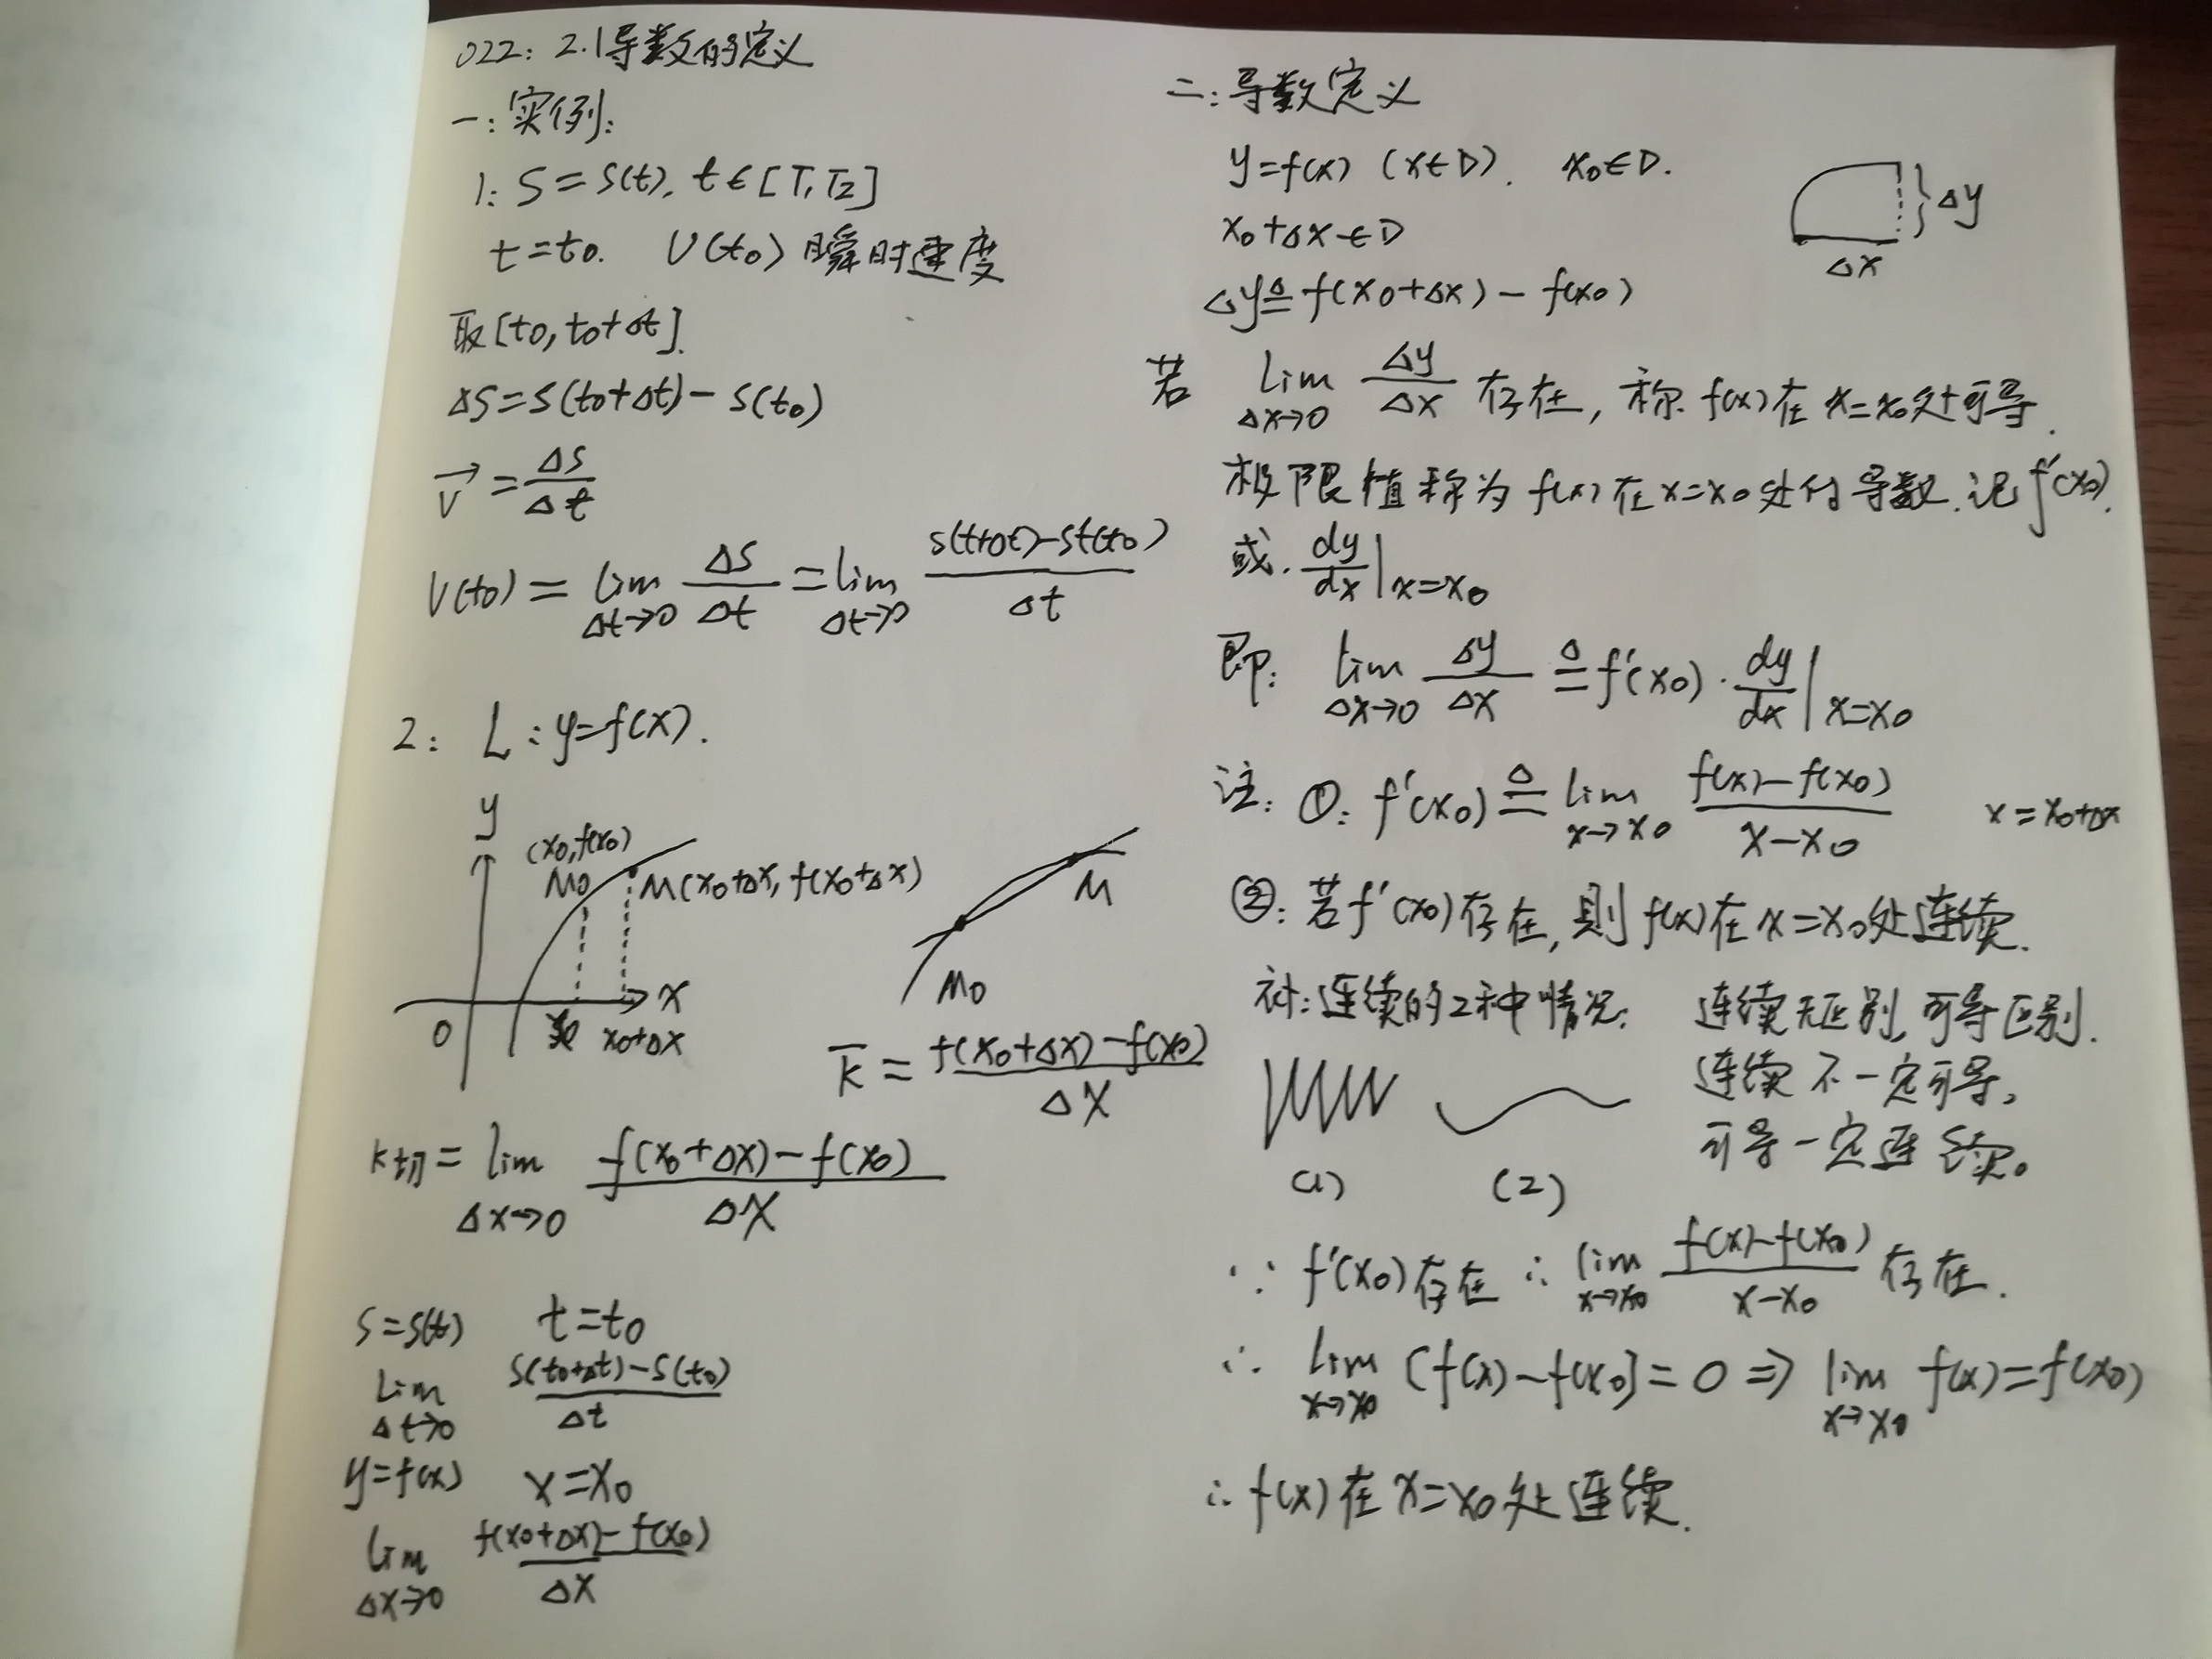 022: 2.1导数的定义
一:实例:
1: S=S(t), t∈[T1,T2]
t=t0. V(t0) 瞬时速度
取[t0, t0+Δt].
ΔS=S(t0+Δt)-S(t0)
V→=ΔS/Δt
V(t0)=lim Δt→0 ΔS/Δt=lim Δt→0 S(t+Δt)-St(t0)/Δt
2: L: y=f(x).
y
(x0,f(x0)
M0 M(x0+Δx, f(x0+Δx)
M
M0
0 x0 x0+Δx x
k̄=f(x0+Δx)-f(x0)/Δx
k切=lim Δx→0 f(x0+Δx)-f(x0)/Δx
S=S(t) t=t0
lim Δt→0 S(t0+Δt)-S(t0)/Δt
y=f(x) x=x0
lim Δx→0 f(x0+Δx)-f(x0)/Δx
二:导数定义
y=f(x) (x∈D). x0∈D.
x0+Δx∈D
Δy
Δx
Δy≜f(x0+Δx)-f(x0)
若 lim Δx→0 Δy/Δx 存在, 称 f(x)在x=x0处可导.
极限值称为f(x)在x=x0处的导数.记f'(x0).
或. dy/dx|x=x0
即: lim Δx→0 Δy/Δx ≜ f'(x0) · dy/dx|x=x0
注: ①: f'(x0)≜lim x→x0 f(x)-f(x0)/x-x0 x=x0+Δx
②: 若f'(x0)存在, 则f(x)在x=x0处连续.
补:连续的2种情况: 连续无区别,可导区别.
连续不一定可导。
可导一定连续。
(1) (2)
∵ f'(x0)存在 ∴ lim x→x0 f(x)-f(x0)/x-x0 存在.
∴ lim x→x0 [f(x)-f(x0]=0 ⇒ lim x→x0 f(x)=f(x0)
∴ f(x)在x=x0处连续.